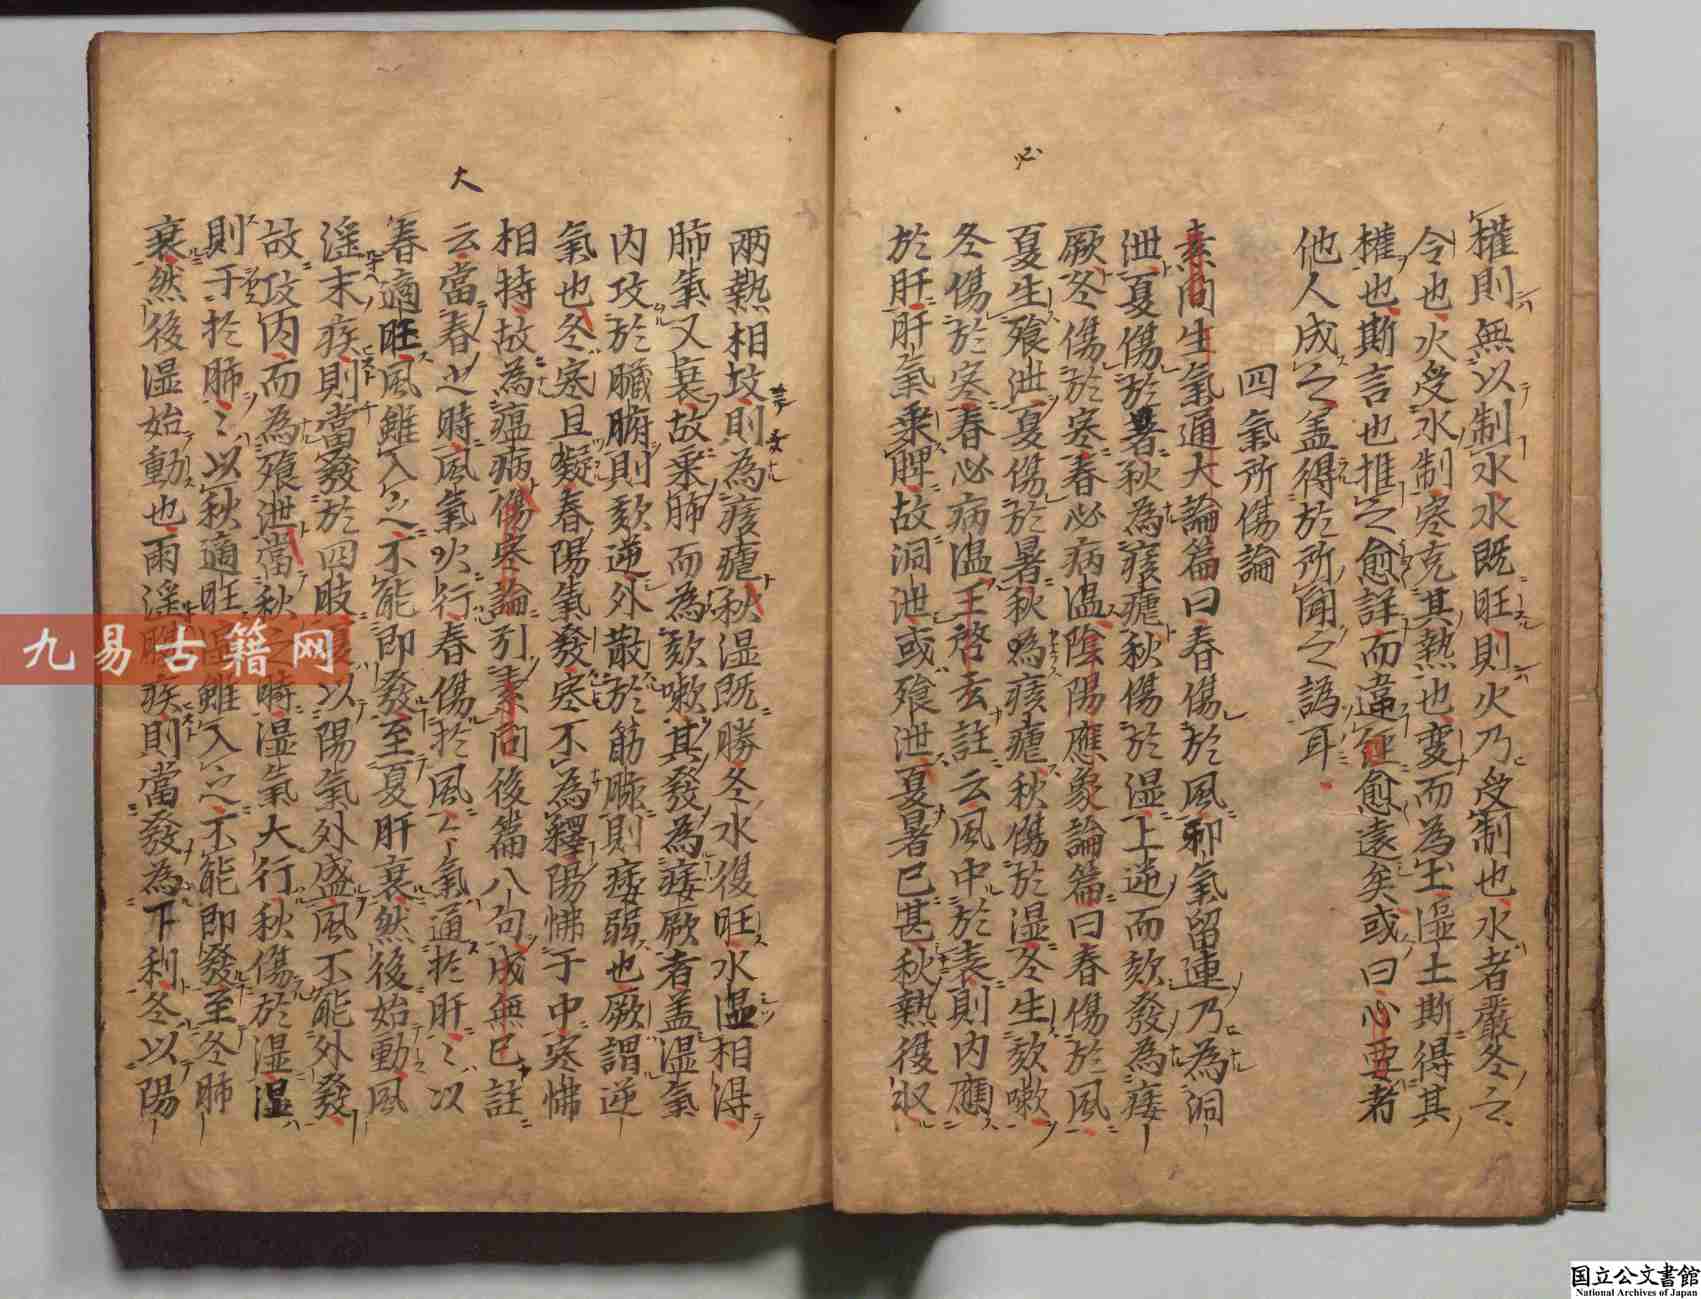 權則無以制水水既旺則火乃受制也水者嚴冬之
令也火受水制寒克其熱也変而為土湿土斯得其
權也斯言也推之愈詳而違經愈遠矣或曰心要者
他人成之盖得於所聞之譌耳
四氣所傷論
素问生氣通大論篇曰春傷於風邪氣留連乃為洞
泄夏傷於暑秋為痎瘧秋傷於湿上逆而欬發為痿
厥冬傷於寒春必病温陰陽應象論篇曰春傷於風
夏生飱泄夏傷於暑秋為痎瘧秋傷於湿冬生欬嗽
冬傷於寒春必病温王啓玄註云風中於表則内應
於肝肝氣乗脾故洞泄或飱泄夏暑已甚秋熱復収
必
兩熱相攻則為痎瘧秋湿既勝冬水復旺水湿相得
肺氣又衰故乗肺而為欬嗽其發為痿厥者盖湿氣
内攻於臓腑則欬逆外散於筋脉則痿弱也厥謂逆
氣也冬寒且凝春陽氣發寒不為釋陽怫于中寒怫
相持故為瘟病傷寒論引素问後篇八句成無已註
云當春之時風氣大行春傷於風々氣通於肝々以
春適旺風雖入之不能即發至夏肝衰然後始動風
淫末疾則當發於四肢夏以陽氣外盛風不能外發
故攻内而為飱泄當秋之時湿氣大行秋傷於湿湿
則于於肺々以秋適旺湿雖入之不能即發至冬肺
衰然後湿始動也雨淫腹疾則當發為下利冬以陽
大
九易古籍网
国立公文書館
National Archives of Japan